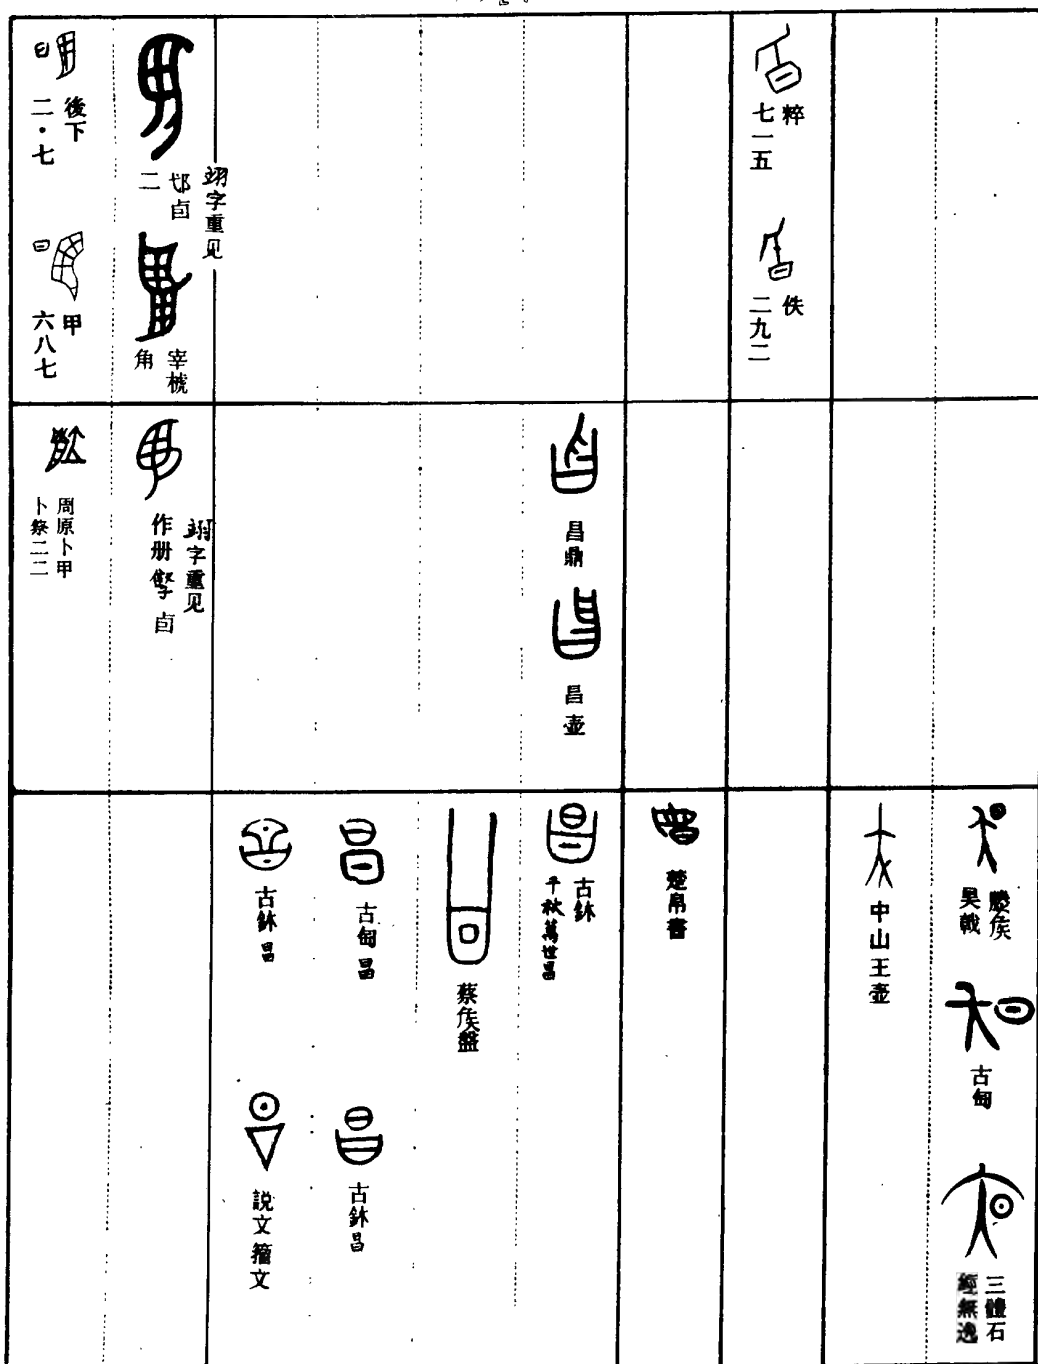 粹
七一五
佚
二九二
𠨘卣
二
翊字重见
宰椃
角
後下
二·七
甲
六八七
昌鼎
昌壶
翊字重见
作册
卣
周原卜甲
卜祭二二
滕侯
昊戟
古匋
三體石
經無逸
中山王壺
楚帛書
古鉢
千秋萬世昌
蔡侯盤
古匋昌
古鉢昌
古鉢昌
説文籀文